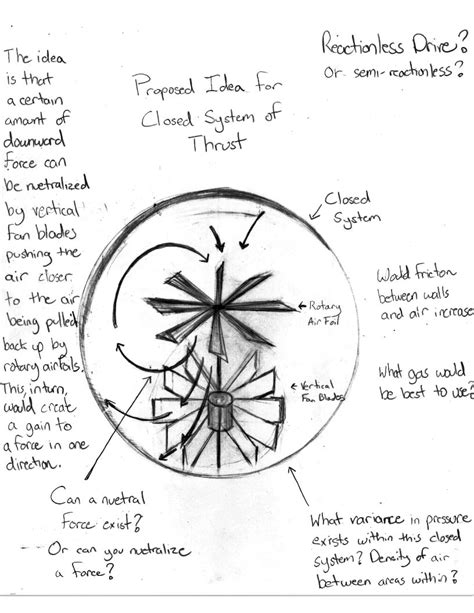 Reactionless Drive?
Or semi-reactionless?
Proposed Idea for
Closed System of
Thrust
The idea
is that
a certain
amount of
downward
force can
be nuetralized
by vertical
fan blades
pushing the
air closer
to the air
being pulled
back up by
rotary airfoils.
This, inturn,
would creat
a gain to
a force in one
direction.
Closed
System
← Rotary
Air Foil
← Vertical
Fan Blades
Would friction
between walls
and air increase
What gas would
be best to use?
Can a nuetral
force exist?
Or can you nuetralize
a force?
What variance in pressure
exists within this closed
system? Density of air
between areas within?